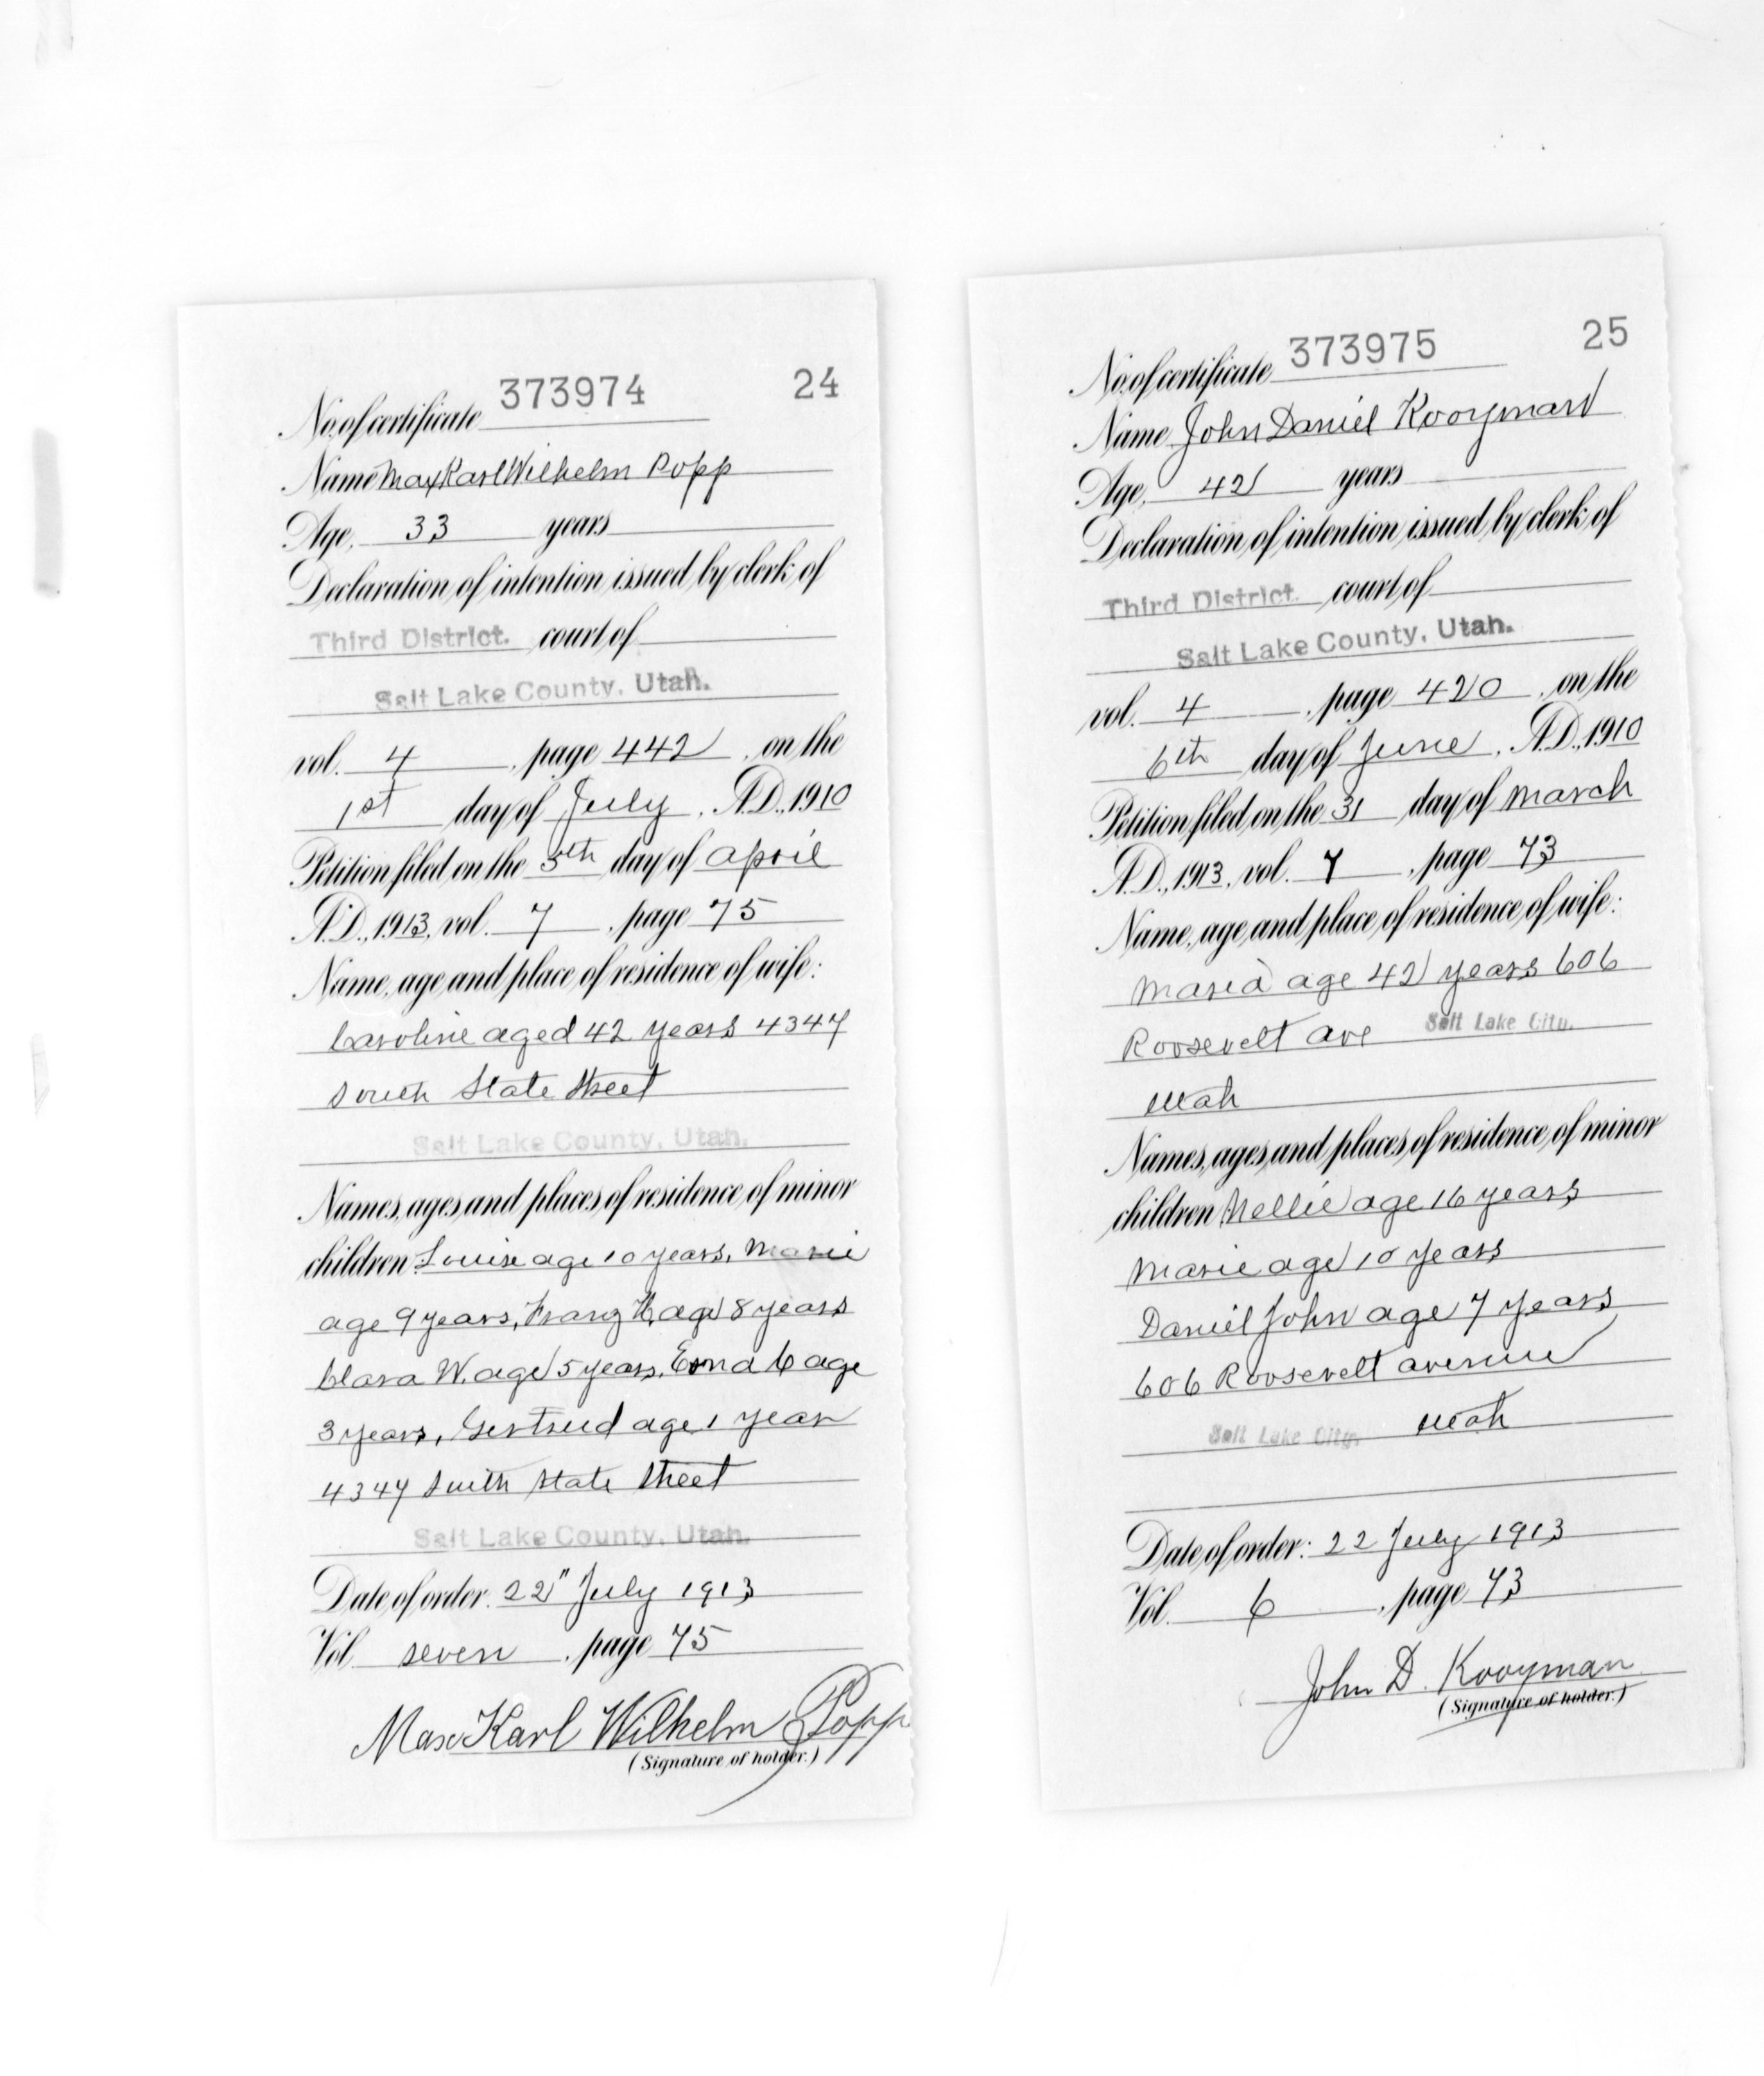 No. of certificate 373974 24
Name Max Karl Wilhelm Popp
Age, 33 years
Declaration of intention issued by clerk of
Third District. court of
Salt Lake County, Utah.
vol. 4, page 442, on the
1st day of July, A.D., 1910
Petition filed on the 5th day of April
A.D., 1913, vol. 7, page 75
Name, age and place of residence of wife:
Caroline aged 42 years 4347
South State Street
Salt Lake County, Utah.
Names, ages and places of residence of minor
children: Louise age 10 years, Marie
age 9 years, Franz K. age 8 years
Clara W. age 5 years, Erna C age
3 years, Gertrud age 1 year
4347 South State Street
Salt Lake County, Utah.
Date of order: 22" July 1913
Vol. seven, page 75
Max Karl Wilhelm Popp
(Signature of holder.)
No. of certificate 373975 25
Name John Daniel Kooyman
Age, 42 years
Declaration of intention issued by clerk of
Third District. court of
Salt Lake County, Utah.
vol. 4, page 420, on the
6th day of June, A.D., 1910
Petition filed on the 31 day of March
A.D., 1913, vol. 7, page 73
Name, age and place of residence of wife:
Maria age 42 years 606
Roosevelt Ave Salt Lake City.
Utah
Names, ages and places of residence of minor
children Nellie age 16 years
Marie age 10 years
Daniel John age 7 years
606 Roosevelt avenue
Salt Lake City. Utah
Date of order: 22 July 1913
Vol. 6, page 73
John D. Kooyman
(Signature of holder.)